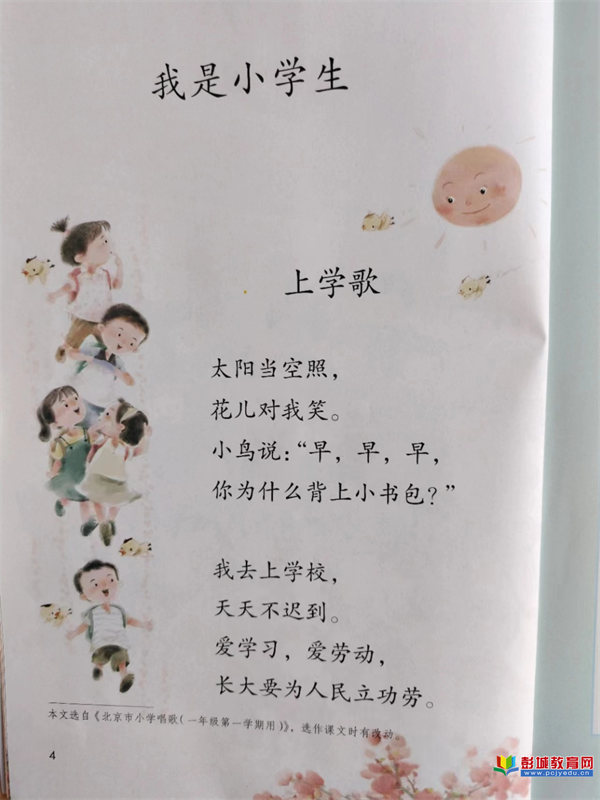 我是小学生
上学歌
太阳当空照，
花儿对我笑。
小鸟说：“早，早，早，
你为什么背上小书包？”
我去上学校，
天天不迟到。
爱学习，爱劳动，
长大要为人民立功劳。
本文选自《北京市小学唱歌（一年级第一学期用）》，选作课文时有改动。
4
彭城教育网
www.pcjyedu.cn